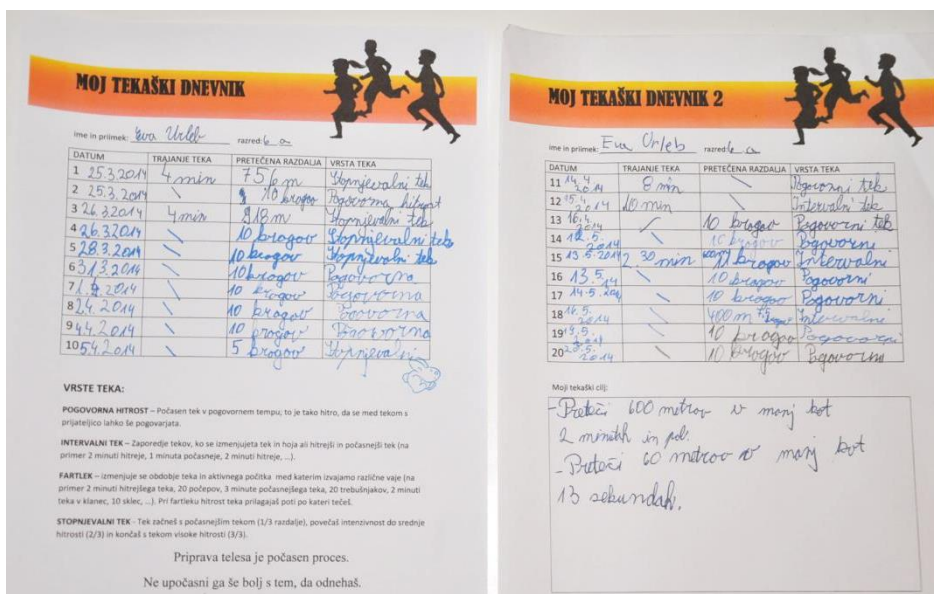 MOJ TEKAŠKI DNEVNIK
ime in priimek: Eva Urleb razred: 6. a
DATUM TRAJANJE TEKA PRETEČENA RAZDALJA VRSTA TEKA
1 25.3.2014 4 min 756 m Stopnjevalni tek
2 25.3.2014 \ 10 krogov Pogovorna hitrost
3 26.3.2014 4 min 918 m Stopnjevalni tek
4 26.3.2014 \ 10 krogov Stopnjevalni tek
5 28.3.2014 \ 10 krogov Stopnjevalni tek
6 31.3.2014 \ 10 krogov Pogovorna
7 1.4.2014 \ 10 krogov Pogovorna
8 2.4.2014 \ 10 krogov Pogovorna
9 4.4.2014 \ 10 krogov Pogovorna
10 5.4.2014 \ 5 krogov Stopnjevalni
VRSTE TEKA:
POGOVORNA HITROST – Počasen tek v pogovornem tempu; to je tako hitro, da se med tekom s
prijateljico lahko še pogovarjata.
INTERVALNI TEK – Zaporedje tekov, ko se izmenjujeta tek in hoja ali hitrejši in počasnejši tek (na
primer 2 minuti hitreje, 1 minuta počasneje, 2 minuti hitreje, ...).
FARTLEK – izmenjuje se obdobje teka in aktivnega počitka med katerim izvajamo različne vaje (na
primer 2 minuti hitrejšega teka, 20 počepov, 3 minute počasnejšega teka, 20 trebušnjakov, 2 minuti
teka v klanec, 10 sklec, ...). Pri fartleku hitrost teka prilagajaš poti po kateri tečeš.
STOPNJEVALNI TEK - Tek začneš s počasnejšim tekom (1/3 razdalje), povečaš intenzivnost do srednje
hitrosti (2/3) in končaš s tekom visoke hitrosti (3/3).
Priprava telesa je počasen proces.
Ne upočasni ga še bolj s tem, da odnehaš.
MOJ TEKAŠKI DNEVNIK 2
ime in priimek: Eva Urleb razred: 6. a
DATUM TRAJANJE TEKA PRETEČENA RAZDALJA VRSTA TEKA
11 14.4.2014 8 min \ Pogovorni tek
12 15.4.2014 10 min \ Intervalni tek
13 16.4.2014 / 10 krogov Pogovorni tek
14 12.5.2014 \ 10 krogov Pogovorni
15 13.5.2014 2 30 min 11 krogov Intervalni
16 13.5.14 \ 10 krogov Pogovorni
17 14.5.2014 \ 10 krogov Pogovorni
18 16.5.2014 \ 400 m Intervalni
19 19.5.2014 \ 10 krogov Pogovorni
20 23.5.2014 \ 10 krogov Pogovorni
Moji tekaški cilj:
- Preteči 600 metrov v manj kot
2 minutah in pol.
- Preteči 60 metrov v manj kot
13 sekundah.